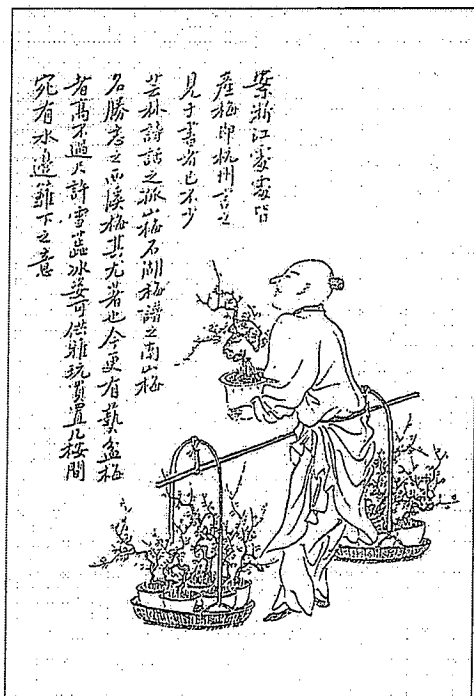 案浙江處處皆
產梅即杭州言之
見于書者已不少
芸林詩話之孤山梅石湖梅譜之南山梅
名勝志之西溪梅其尤著也今更有藝盆梅
者高不過尺許雪蕊冰姿可供雅玩買置几榻間
宛有水邊籬下之意